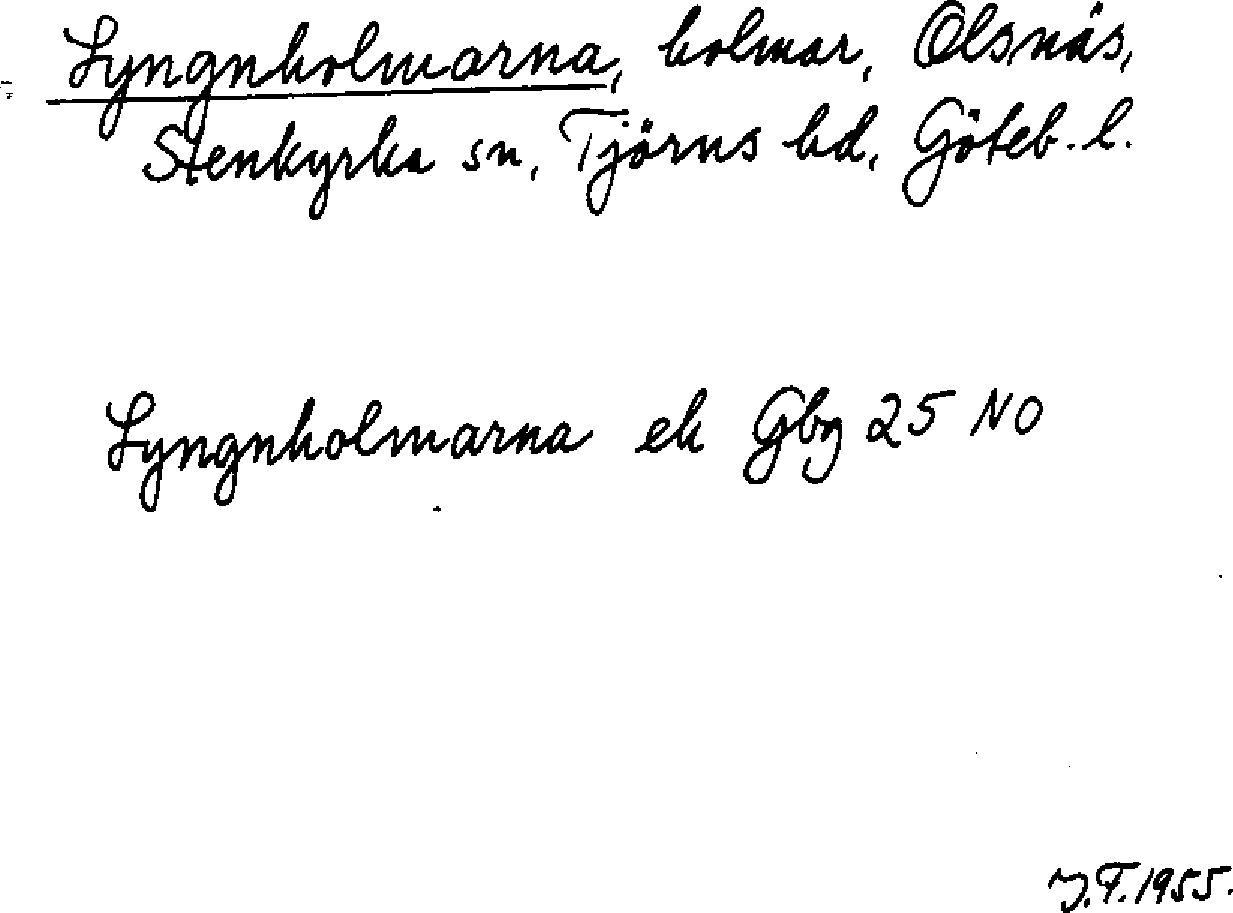 Lyngnholmarna, holmar, Olsnäs,
Stenkyrka sn, Tjörns hd, Göteb. l.
Lyngnholmarna ek Gbg 25 NO
J.T. 1955.